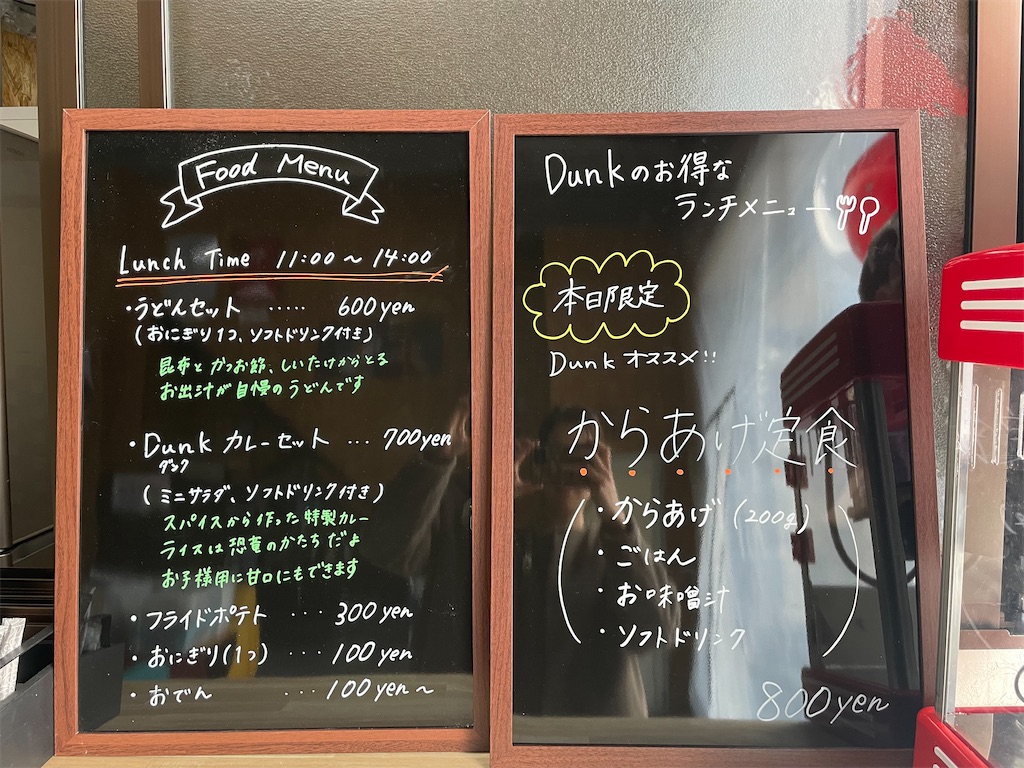 Food Menu
Lunch Time 11:00 ~ 14:00
・うどんセット ····· 600yen
(おにぎり1つ、ソフトドリンク付き)
昆布とかつお節、しいたけからとる
お出汁が自慢のうどんです
・Dunkカレーセット ··· 700yen
ダンク
(ミニサラダ、ソフトドリンク付き)
スパイスから作った特製カレー
ライスは恐竜のかたちだよ
お子様用に甘口にもできます
・フライドポテト ···· 300yen
・おにぎり(1つ) ···· 100yen
・おでん ···· 100yen~
Dunkのお得な
ランチメニュー
本日限定
Dunkオススメ!!
からあげ定食
・からあげ(200g)
・ごはん
・お味噌汁
・ソフトドリンク
800yen